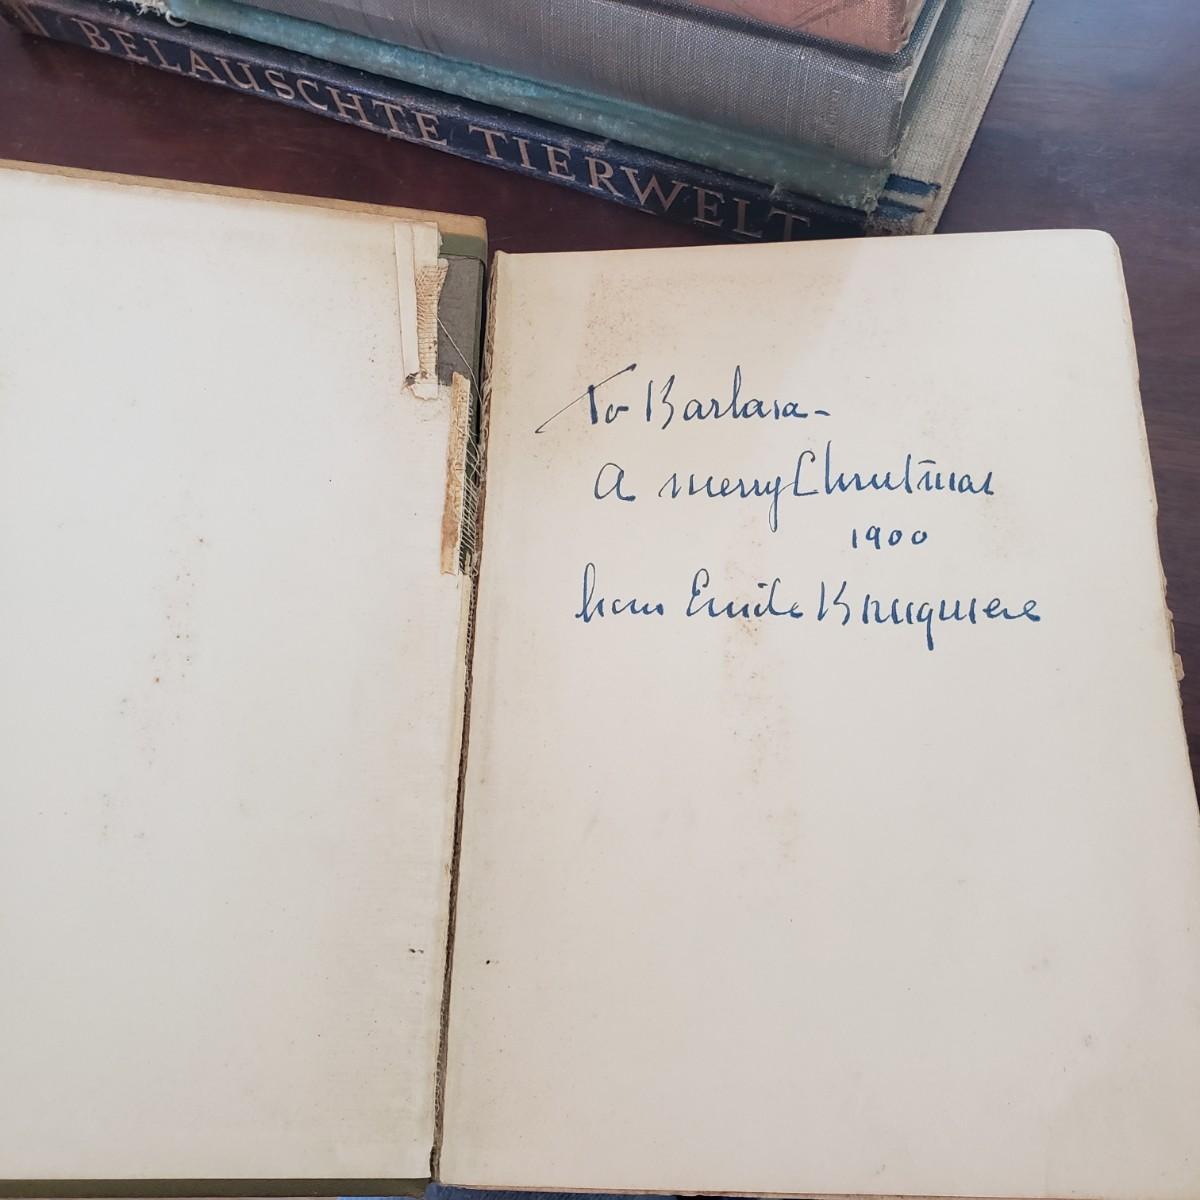 BELAUSCHTE TIERWELT
To Barbara-
A merry Christmas
1900
from Emile Bruguiere